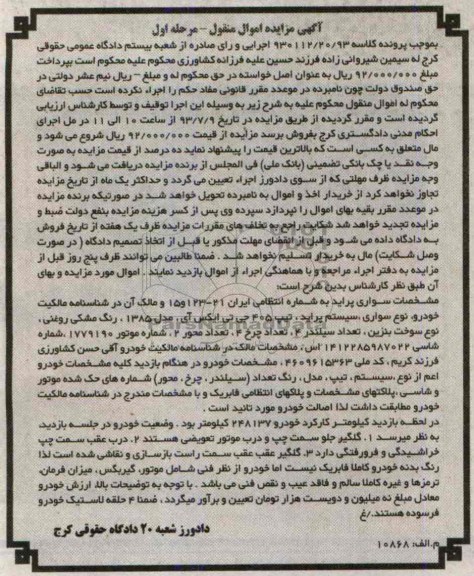 آگهی مزایده اموال منقول - مرحله اول
بموجب پرونده کلاسه ۹۳۰۱۱۲/۲۰/۹۳ اجرایی و رای صادره از شعبه بیستم دادگاه عمومی حقوقی
کرج له سیمین شیروانی زاده فرزند حسین علیه فرزانه کشاورزی محکوم علیه محکوم است بپرداخت
مبلغ ۹۲/۰۰۰/۰۰۰ ریال به عنوان اصل خواسته در حق محکوم له و مبلغ - ریال نیم عشر دولتی در
حق صندوق دولت چون نامبرده در موعدد مقرر قانونی مفاد حکم را اجراء نکرده است حسب تقاضای
محکوم له اموال منقول محکوم علیه به شرح زیر به وسیله این اجرا توقیف و توسط کارشناس ارزیابی
گردیده است و مقرر گردیده از طریق مزایده در تاریخ ۹۳/۷/۹ از ساعت ۱۰ الی ۱۱ در مل اجرای
احکام مدنی دادگستری کرج بفروش برسد مزایده از قیمت ۹۲/۰۰۰/۰۰۰ ریال شروع می شود و
مال متعلق به کسی است که بالاترین قیمت را پیشنهاد نماید ده درصد از قیمت مزایده به صورت
وجه نقد یا چک بانکی تضمینی (بانک ملی) فی المجلس از برنده مزایده دریافت می شود و الباقی
وجه مزایده ظرف مهلتی که از سوی دادورز اجراء تعیین می گردد و حداکثر یک ماه از تاریخ مزایده
تجاوز نخواهد کرد از خریدار اخذ و اموال به نامبرده تحویل خواهد شد در صورتیکه برنده مزایده
در موعدد مقرر بقیه بهای اموال را نپردازد سپرده وی پس از کسر هزینه مزایده بنفع دولت ضبط و
مزایده تجدید خواهد شد شکایت راجع به تخلف های مقررات مزایده ظرف یک هفته از تاریخ فروش
به دادگاه داده می شود و قبل از انقضای مهلت مذکور یا قبل از اتخاذ تصمیم دادگاه ( در صورت
وصل شکایت) مال به خریدار تسلیم نخواهد شد . ضمنا طالبین می توانند ظرف پنج روز قبل از
مزایده به دفتر اجراء مراجعه و با هماهنگی اجراء از اموال بازدید نمایند . اموال مورد مزایده و بهای
آن طبق نظر کارشناس بدین شرح است:
مشخصات سواری پراید به شماره انتظامی ایران ۲۱-۱۲۳و۱۵ و مالک آن در شناسنامه مالکیت
خودرو، نوع سواری ،سیستم پراید ، تیپ ۴۰۵ جی تی ایکس آی ، مدل ۱۳۸۵ ، رنگ مشکی روغنی ،
نوع سوخت بنزین ، تعداد سیلندر ۴ ، تعداد چرخ ۴ ، تعداد محور ۲ ، شماره موتور ۱۷۷۹۱۹۰ ،شماره
شاسی ۱۴۱۲۲۸۵۹۸۷۰۲۲ اس، مشخصات مالک در شناسنامه مالکیت خودرو آقی حسن کشاورزی
فرزند کریم ، کد ملی ۴۶۰۹۶۱۵۳۶۳ ، مشخصات خودرو در هنگام بازدید کلیه مشخصات خودرو
اعم از نوع ،سیستم ، تیپ ، مدل ، رنگ تعداد (سیلندر ، چرخ ، محور) شماره های حک شده موتور
و شاسی ،پلاکتهای مشخصات و پلاکهای انتظامی فابریک و با مشخصات مندرج در شناسنامه مالکیت
خودرو مطابقت داشت لذا اصالت خودرو مورد تائید است .
در لحظه بازدید کیلومتر کارکرد خودرو ۲۴۸۱۳۷ کیلومتر بود . وضعیت خودرو در جلسه بازدید،
به نظر میرسد ۱. گلگیر جلو سمت چپ و درب موتور تعویضی هستند ۲. درب عقب سمت چپ
خراشیدگی و فرورفتگی دارد ۳. گلگیر عقب عقب سمت راست بازسازی و نقاشی شده است لذا
رنگ بدنه خودرو کاملا فابریک نیست اما خودرو از نظر فنی شامل موتور، گیربگس، میزان فرمان،
ترمزها و غیره کاملا سالم و فاقد عیب و نقص فنی می باشد . با توجه به توضیحات بالا، ارزش خودرو
معادل مبلغ نه میلیون و دویست هزار تومان تعیین و برآور میگردد ، ضمنا ۴ حلقه لاستیک خودرو
فرسوده هستند./غ
دادورز شعبه ۲۰ دادگاه حقوقی کرج
م.الف: ۱۰۸۶۸